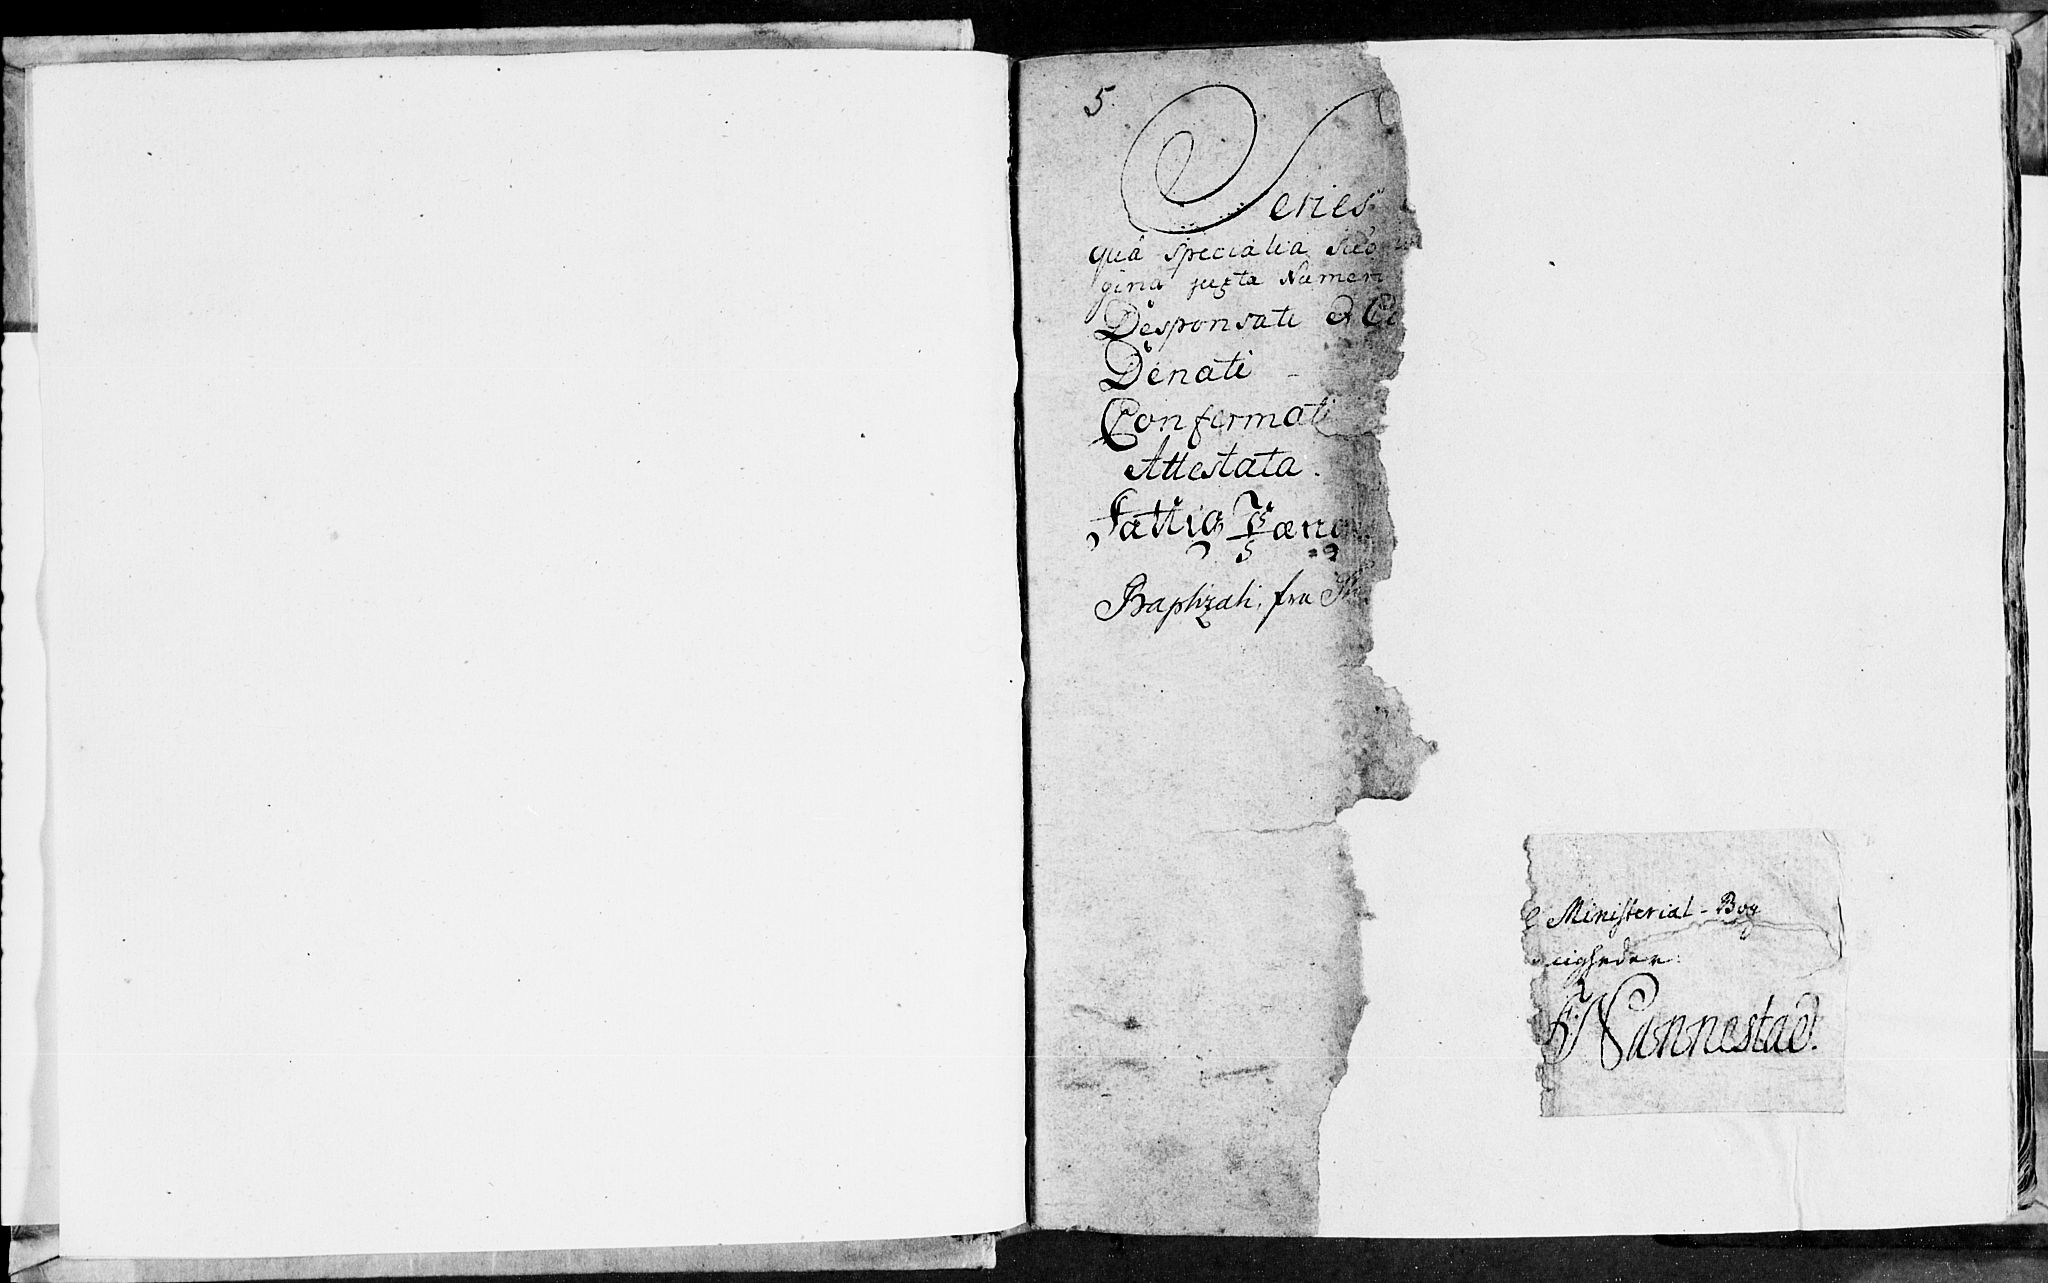 5.
Series
quâ specialia suo
gina juxta Numer
Desponsati & C
Denati
Confermati
Attestata.
Fattig Pæng
Baptizati, fra
Ministerial-Bog
igheder
Nannestad.